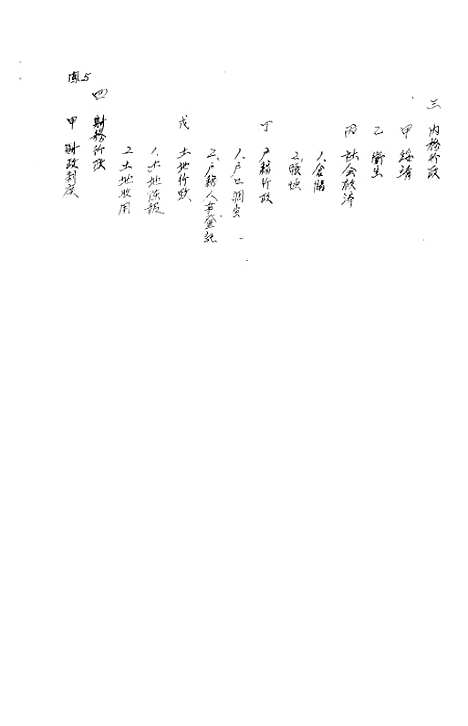 三 内務行政
甲 綏靖
乙 衛生
丙 社会救濟
1. 倉儲
2. 賑恤
丁 户籍行政
1. 户口調查
2. 户籍人事登記
戊 土地行政
1. 土地陈报
2. 土地收用
四 財務行政
甲 財政制度